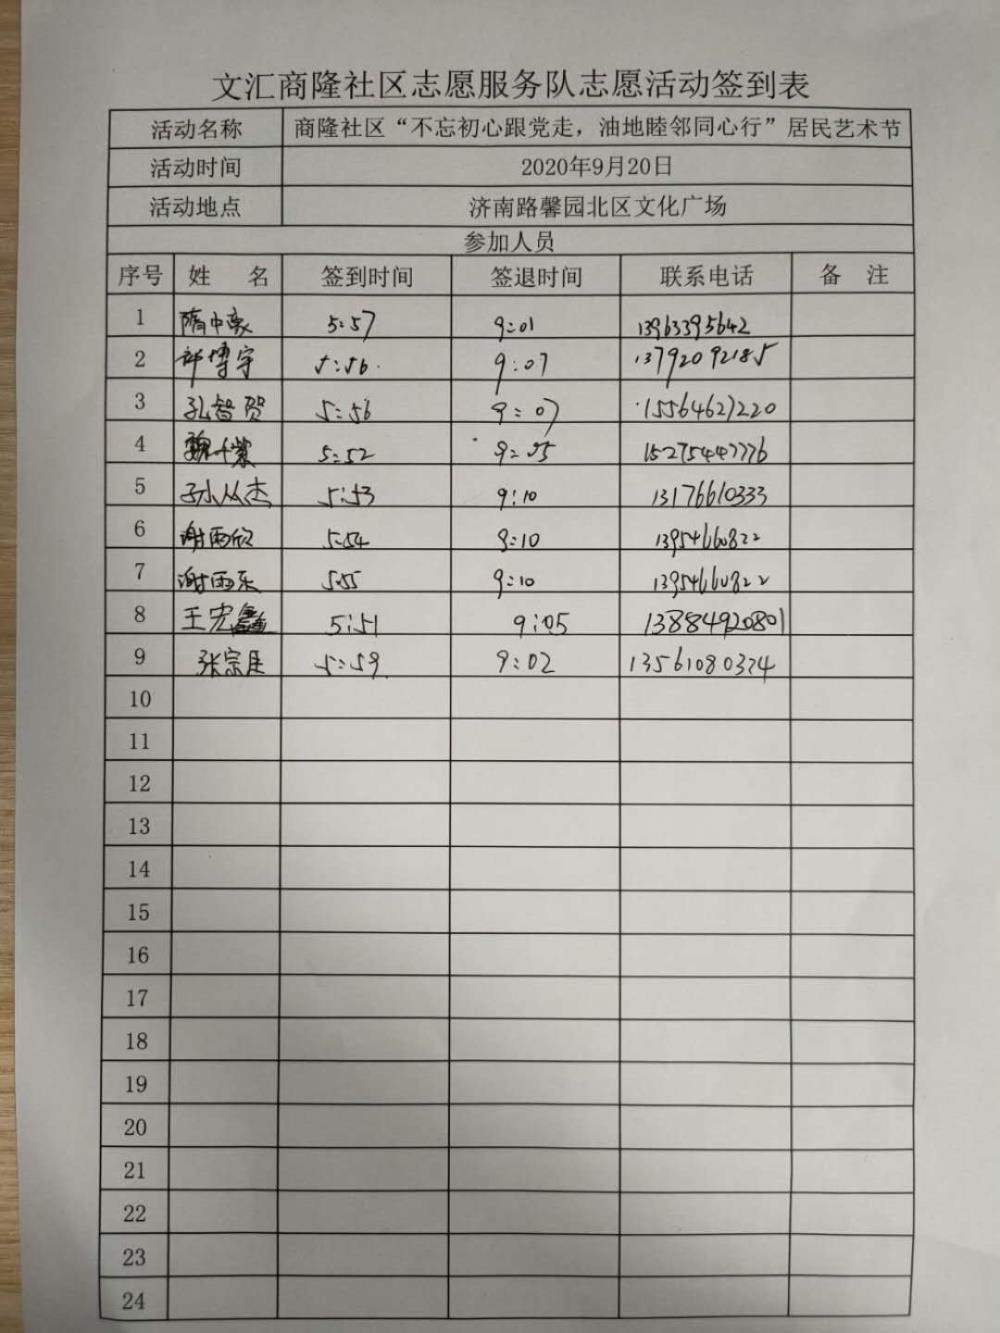 文汇商隆社区志愿服务队志愿活动签到表
活动名称 商隆社区“不忘初心跟党走，油地睦邻同心行”居民艺术节
活动时间 2020年9月20日
活动地点 济南路馨园北区文化广场
参加人员
序号 姓 名 签到时间 签退时间 联系电话 备 注
1 隋中豪 5:57 9:01 13963395642
2 郭博宇 5:56 9:07 13792092185
3 孔智贺 5:56 9:07 15564627220
4 魏千紫 5:52 9:05 15275447776
5 孙从杰 5:53 9:10 13176610333
6 谢雨欣 5:54 9:10 13954660822
7 谢雨乐 5:55 9:10 13954660822
8 王宏鑫 5:51 9:05 13884920801
9 张宗 5:59 9:02 13561080324
10
11
12
13
14
15
16
17
18
19
20
21
22
23
24